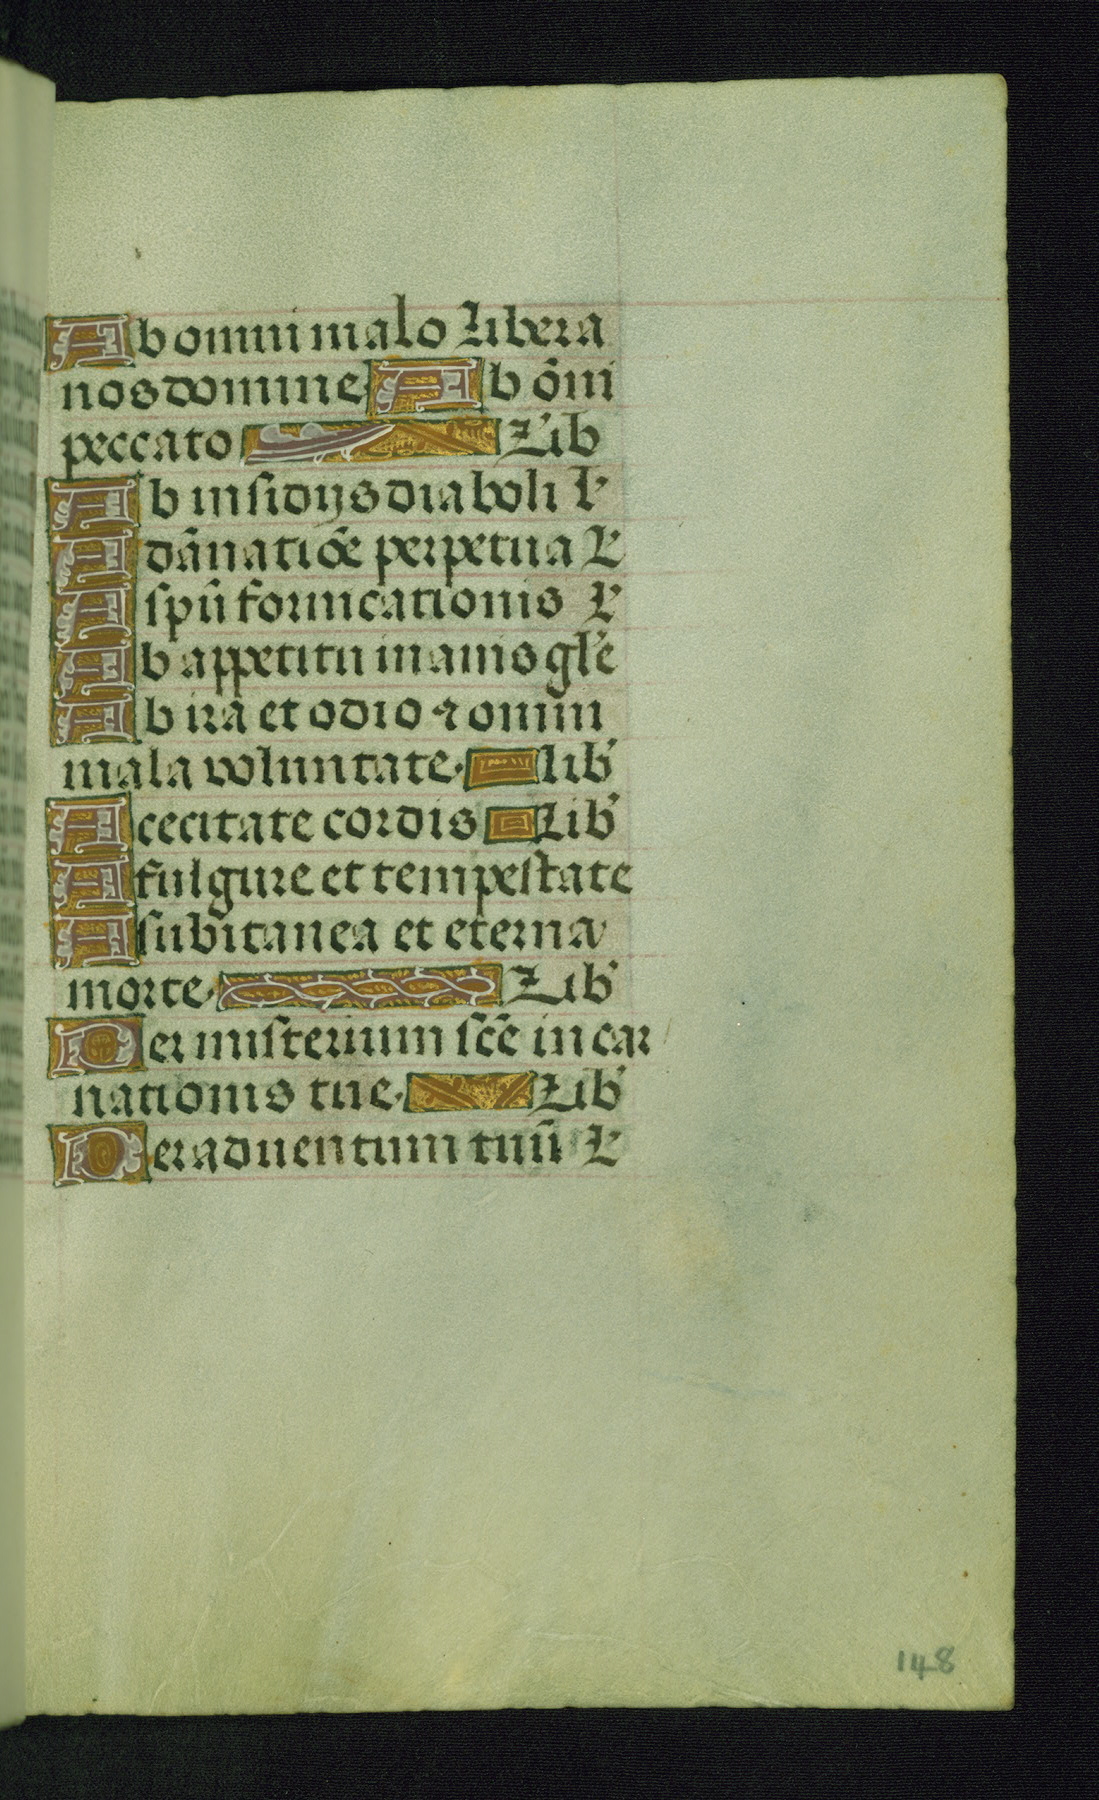 Ab omni malo Libera
nos domine Ab õni
peccato Lib
Ab insidijs diaboli L
A dãnatiõe perpetua L
A spũ fornicationis L
Ab appetitu inanis gl'e
Ab ira et odio ⁊ omni
mala voluntate · lib
A cecitate cordis Lib
A fulgure et tempestate
A subitanea et eterna
morte · Lib
Per misterium sc̃e incar
nationis tue · Lib
Per aduentum tuũ L
148